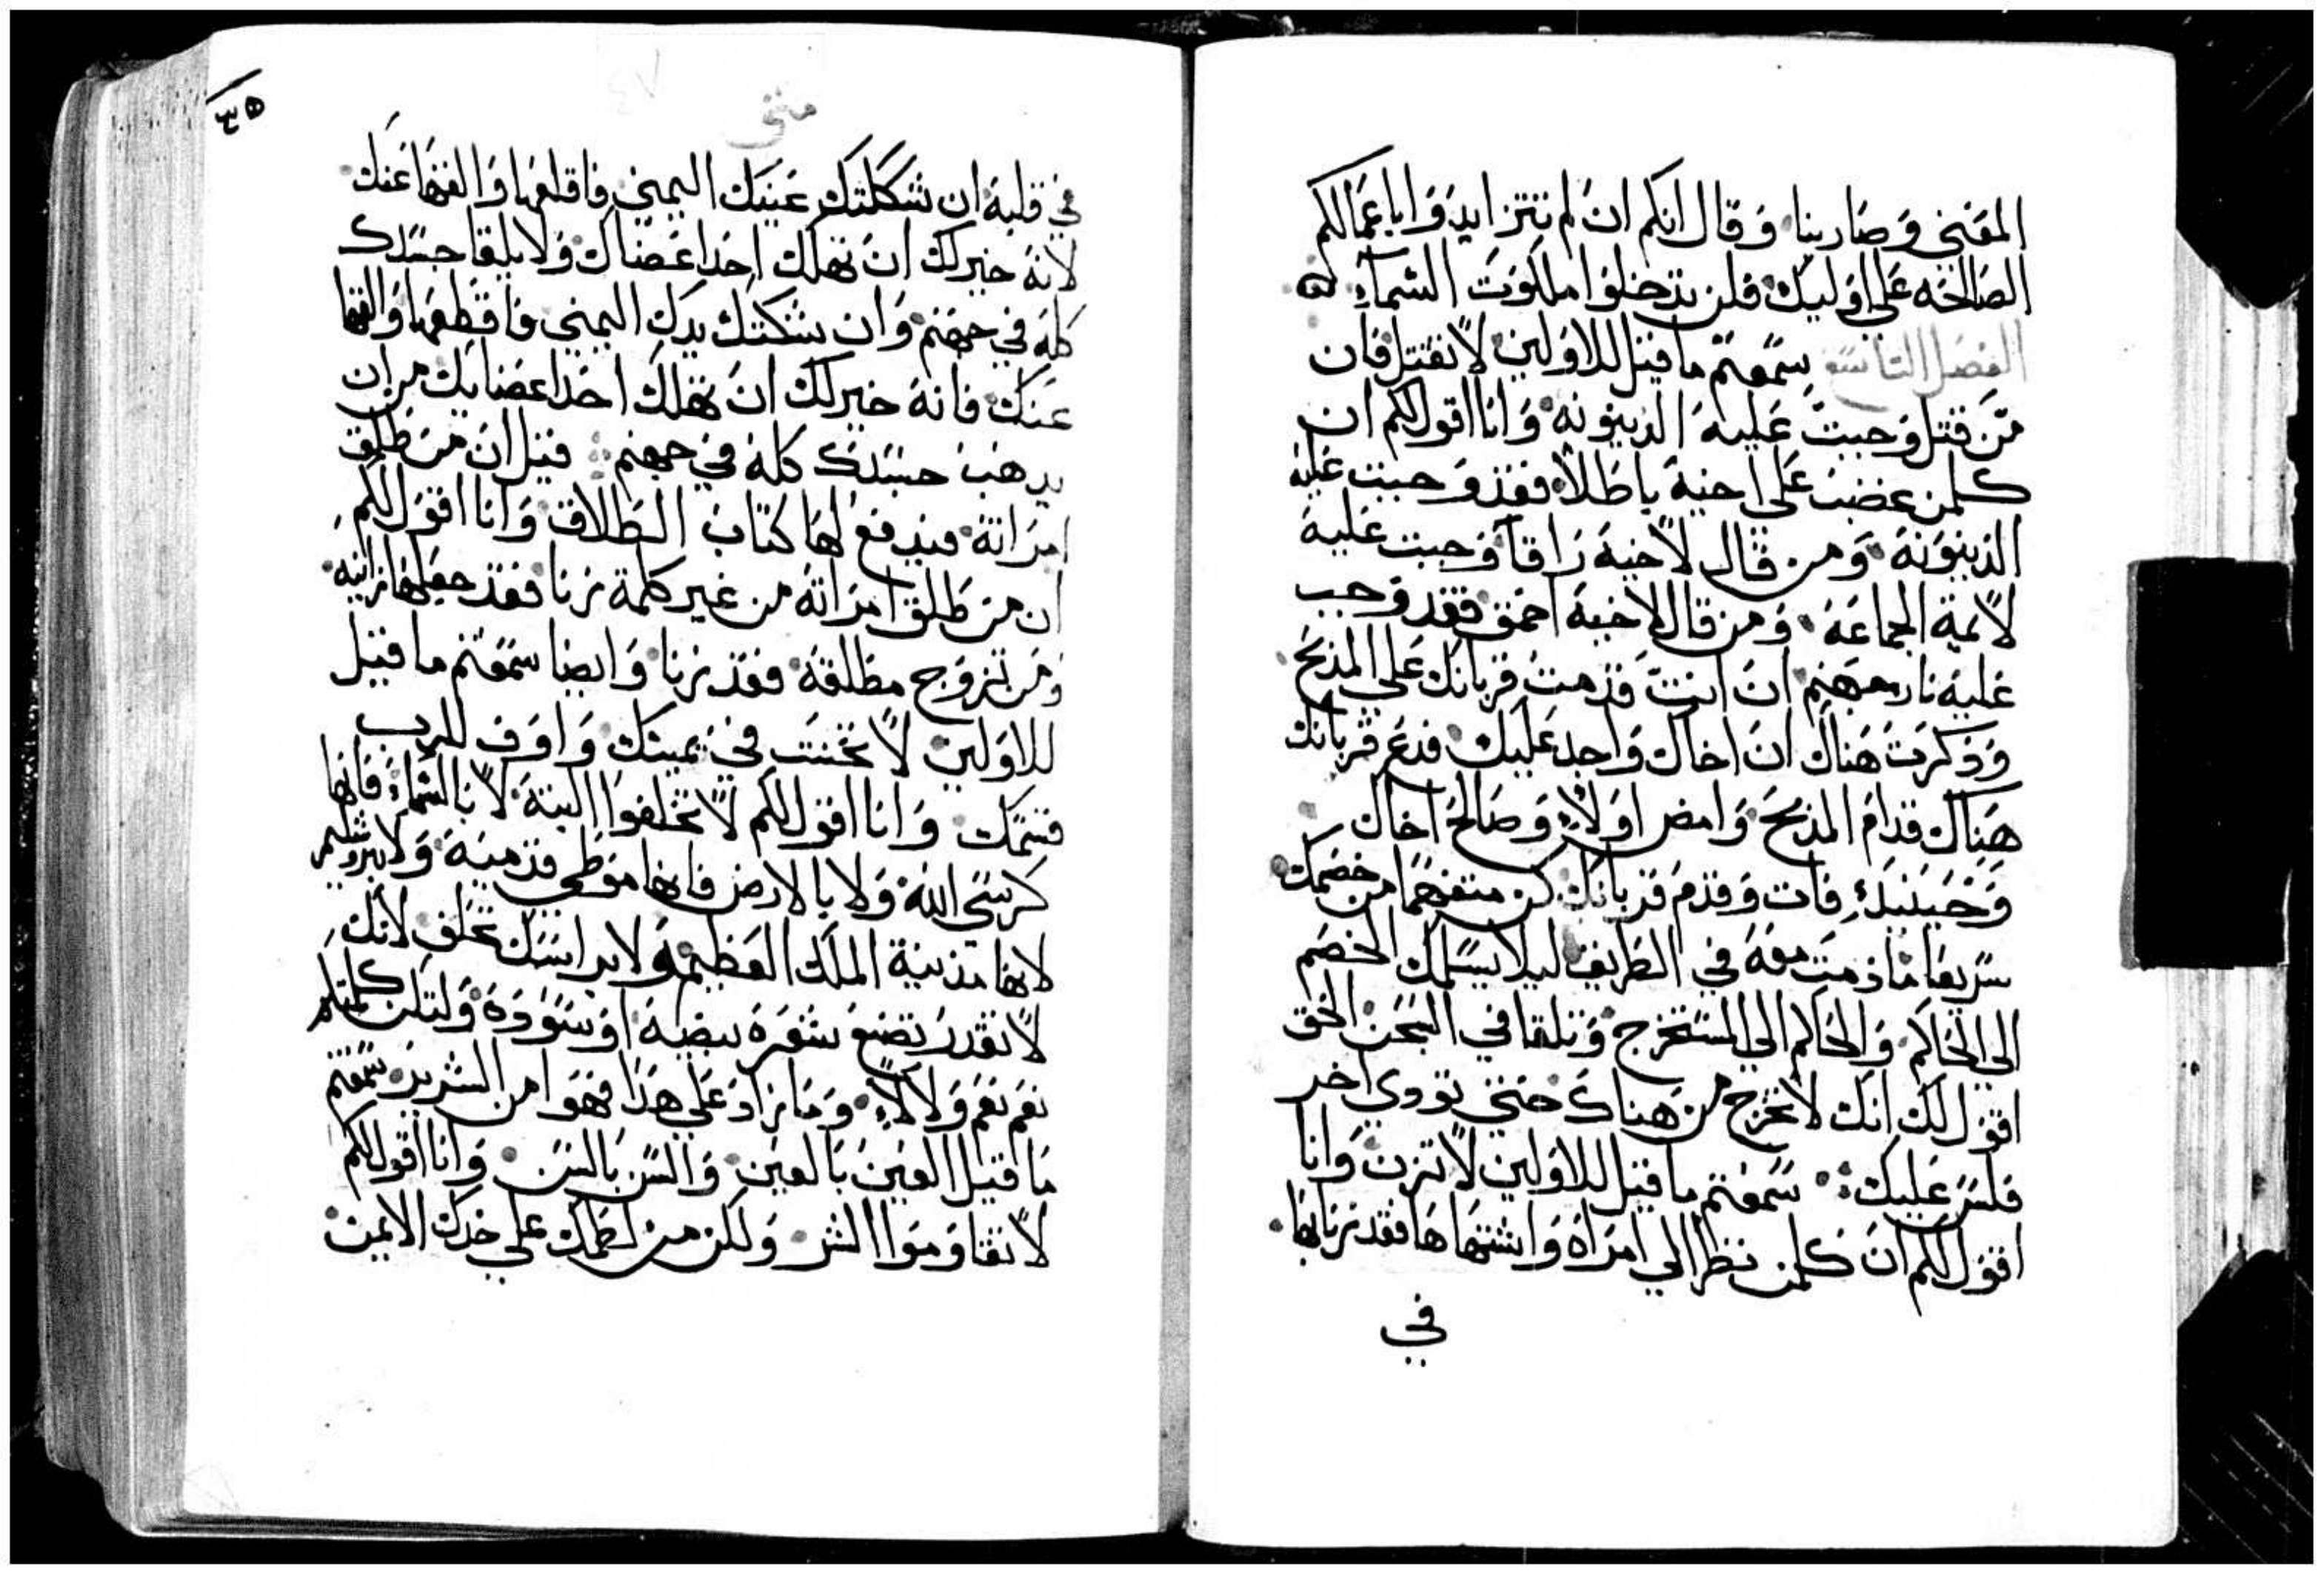 المغني وصاربنا وقال انكم ان لم تتزايدوا باعمالكم
الصالحه علي اوليك فلن تدخلوا ملكوت السماء
الفصل التاسع سمعتم ما قيل للاولين لا تقتل فان
من قتل وجبت عليه الدينونه وانا اقول لكم ان
كلمن غضب علي اخيه باطلا فقد وجبت عليه
الدينونه ومن قال لاخيه راقا وجبت عليه
لايمة الجماعه ومن قال لاخيه احمق فقد وجب
عليه نار جهنم ان انت قدمت قربانك علي المذبح
وذكرت هناك ان اخاك واجد عليك فدع قربانك
هناك قدام المذبح وامض اولا وصالح اخاك
وحينيذ فات وقدم قربانك كن متفهما من خصمك
سريعا ما دمت معه في الطريق ليلا يسلمك الخصم
الي الحاكم والحاكم الي المستخرج وتلقا في السجن الحق
اقول لك انك لا تخرج من هناك حتي تودي اخر
فلس عليك سمعتم ما قيل للاولين لا تزن وانا
اقول لكم ان كلمن نظر الي امراة واشتهاها فقد زنا بها
في
٣٥
متي
في قلبه ان شككتك عينك اليمني فاقلعها والقها عنك
لانه خير لك ان تهلك احد اعضاك ولا يلقا جسدك
كله في جهنم وان شككتك يدك اليمني فاقطعها والقها
عنك فانه خير لك ان تهلك احد اعضايك من ان
يدهب جسدك كله في جهنم قيل ان من طلق
امراته فيدفع لها كتاب الطلاق وانا اقول لكم
ان من طلق امراته من غير كلمة زنا فقد جعلها زانيه
ومن تزوج مطلقه فقد زنا وايضا سمعتم ما قيل
للاولين لا تحنث في يمينك واوف للرب
قسمك وانا اقول لكم لا تحلفوا البتة لا بالسماء فانها
كرسي الله ولا بالارض فانها موطي قدميه ولا بيروشليم
لانها مدينة الملك العظيمه ولا براسك تحلف لانك
لا تقدر تصنع شعره بيضه او سوده ولتكن كلمتكم
نعم نعم ولا لا وما زاد علي هذا فهوا من الشرير سمعتم
ما قيل العين بالعين والسن بالسن وانا اقول لكم
لا تقاوموا الشر ولكن من لطمك علي خدك الايمن